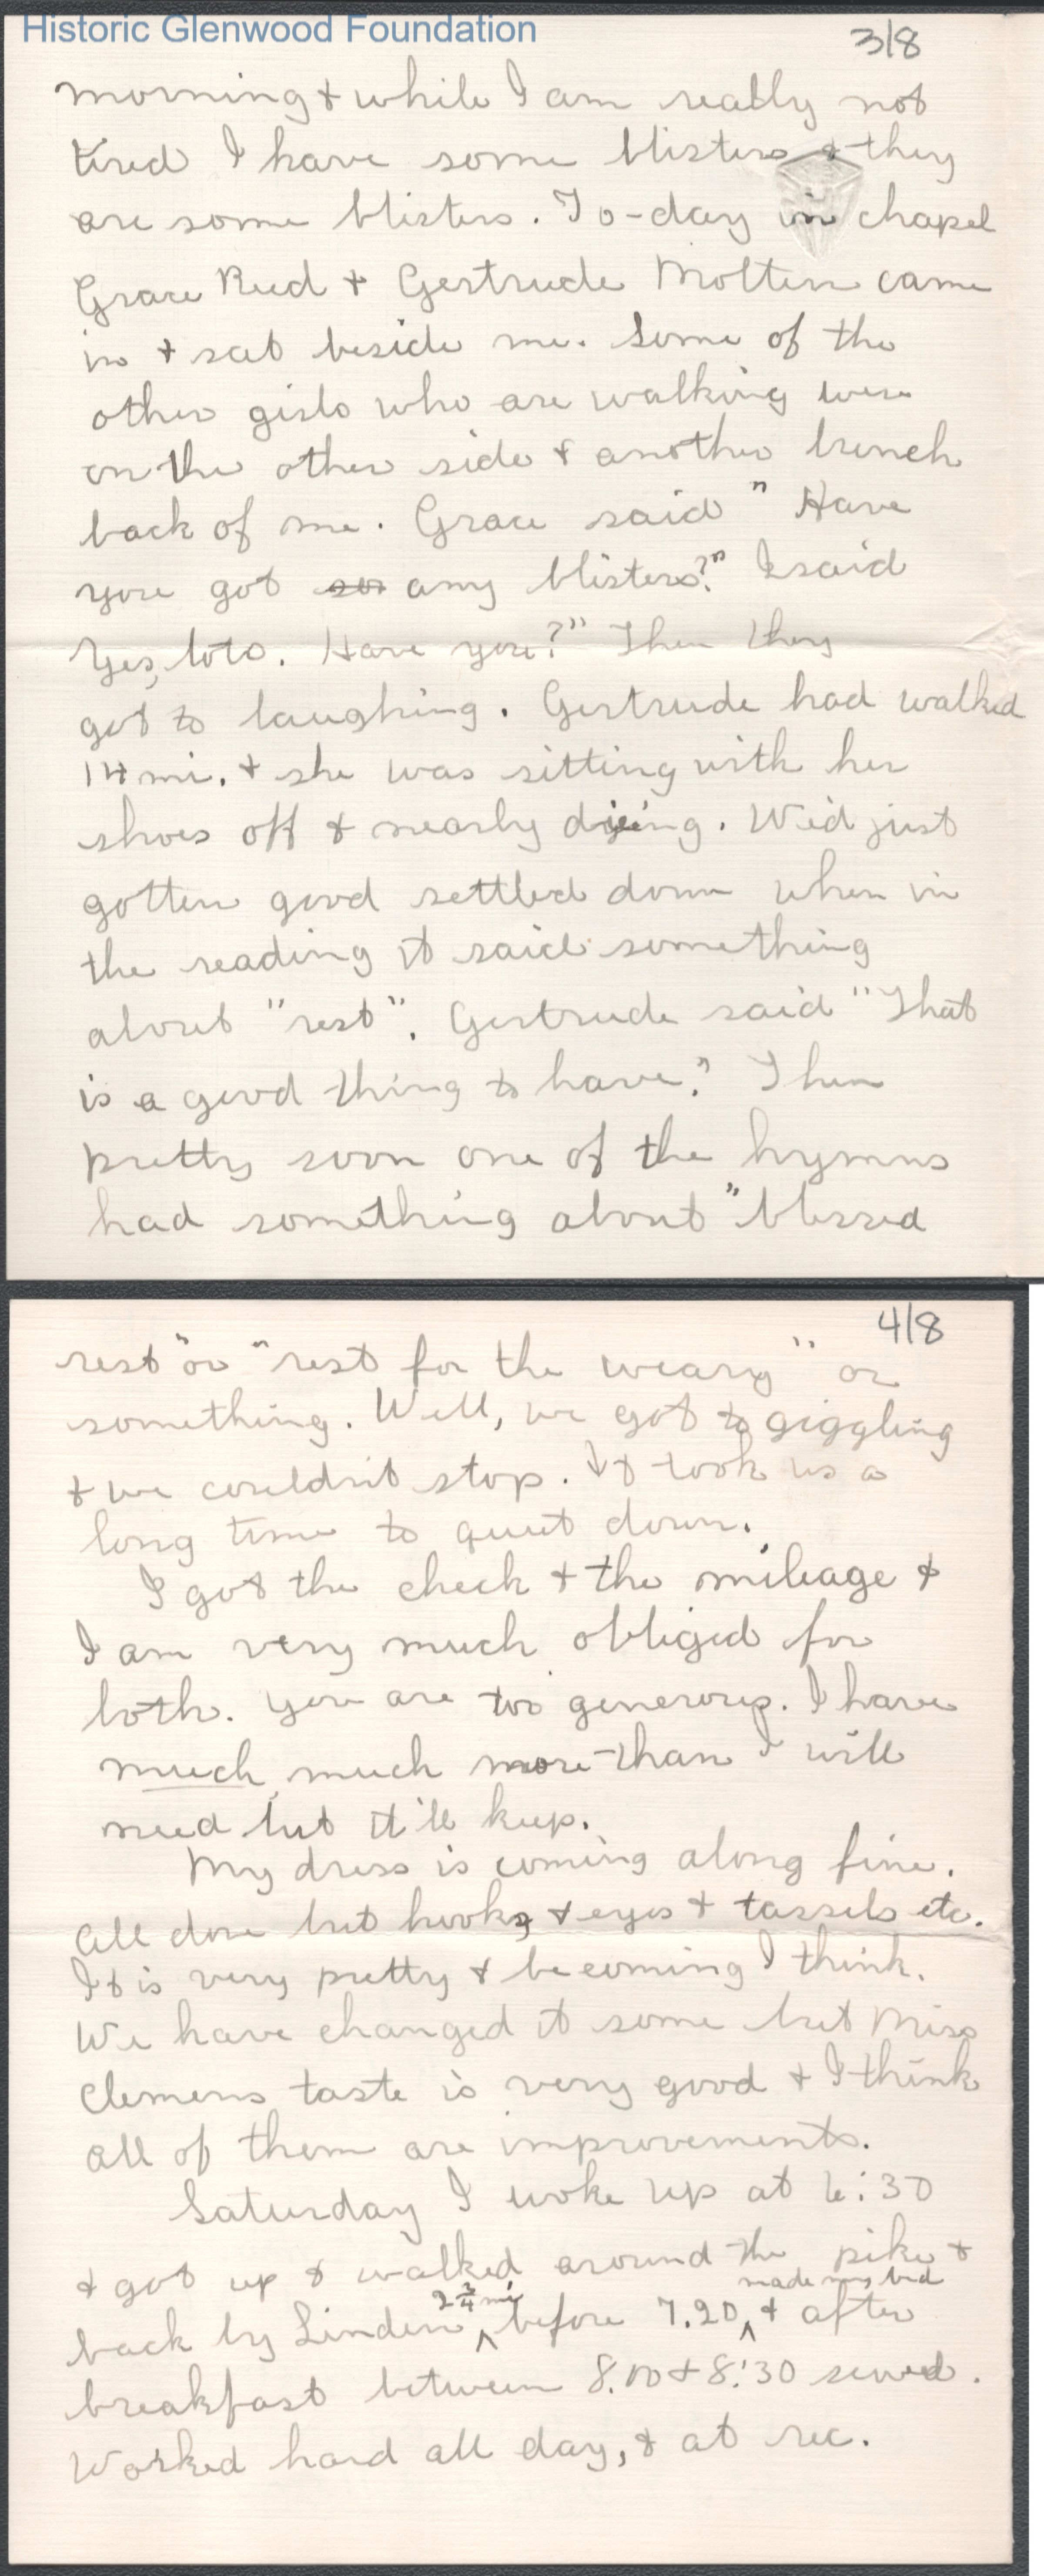 Historic Glenwood Foundation
3/8
morning & while I am really not
tired I have some blisters & they
are some blisters. To-day in chapel
Grace Reed & Gertrude Molten came
in & sat beside me. Some of the
other girls who are walking were
on the other side & another bunch
back of me. Grace said "Have
you got so any blisters?" I said
Yes, lots. Have you?" Then they
got to laughing. Gertrude had walked
14 mi. & she was sitting with her
shoes off & nearly dying. We'd just
gotten good settled down when in
the reading it said something
about "rest". Gertrude said "That
is a good thing to have." Then
pretty soon one of the hymns
had something about "blessed
4/8
rest" or "rest for the weary" or
something. Well, we got to giggling
& we couldn't stop. It took us a
long time to quiet down.
I got the check & the mileage &
I am very much obliged for
both. You are too generous. I have
much, much more than I will
need but it'll keep.
My dress is coming along fine.
All done but hooks & eyes & tassels etc.
It is very pretty & becoming I think.
We have changed it some but Miss
Clemens taste is very good & I think
all of them are improvements.
Saturday I woke up at 6:30
& got up & walked around the pike &
back by Linden 2 3/4 mi. before 7.20, & made my bed after
breakfast between 8.00 & 8:30 sewed.
Worked hard all day, & at rec.